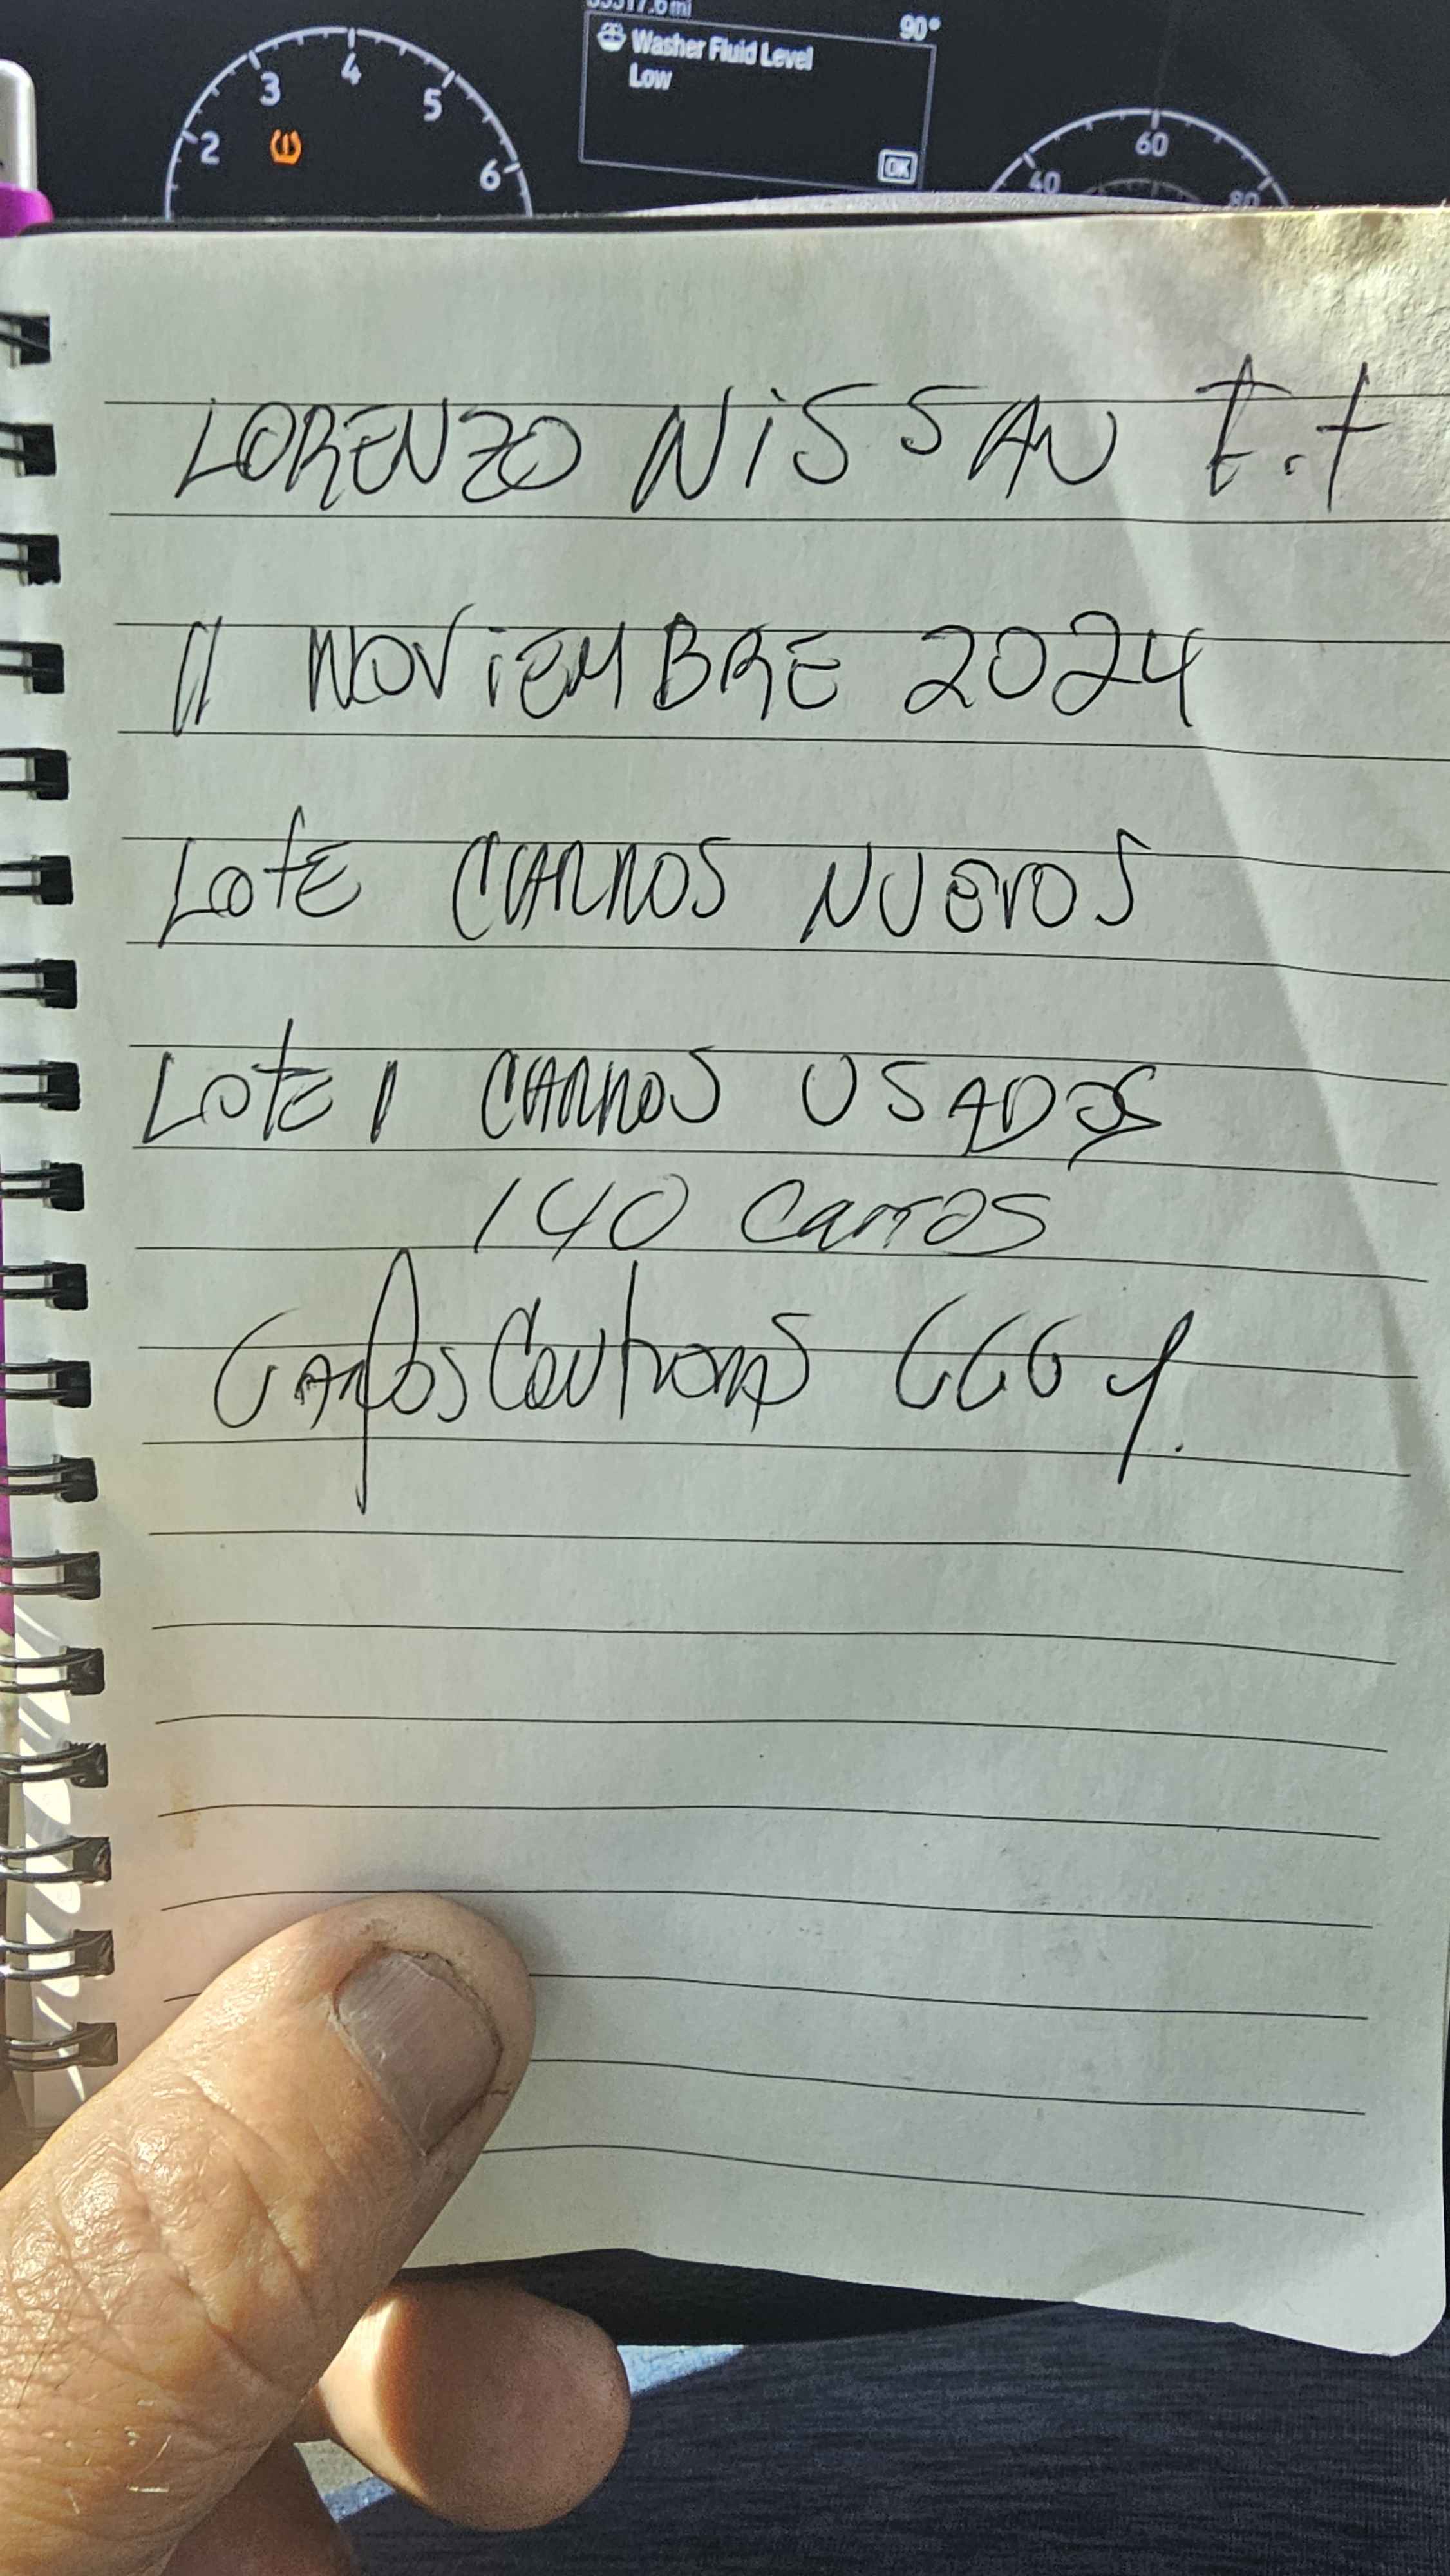 90°
Washer Fluid Level
Low
OK
2 3 4 5 6
40 60 80
LORENZO NiSSAN t.t
11 NOViEMBRE 2024
LotE CARROS NUEVOS
LotE 1 CARROS USADOS
140 Carros
CARlos